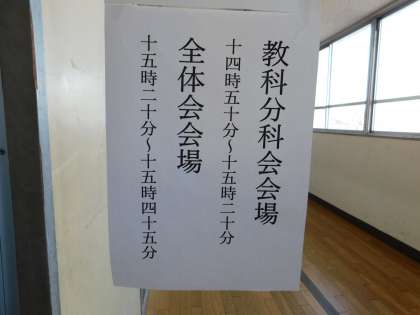 教科分科会会場
十四時五十分～十五時二十分
全体会会場
十五時二十分～十五時四十五分